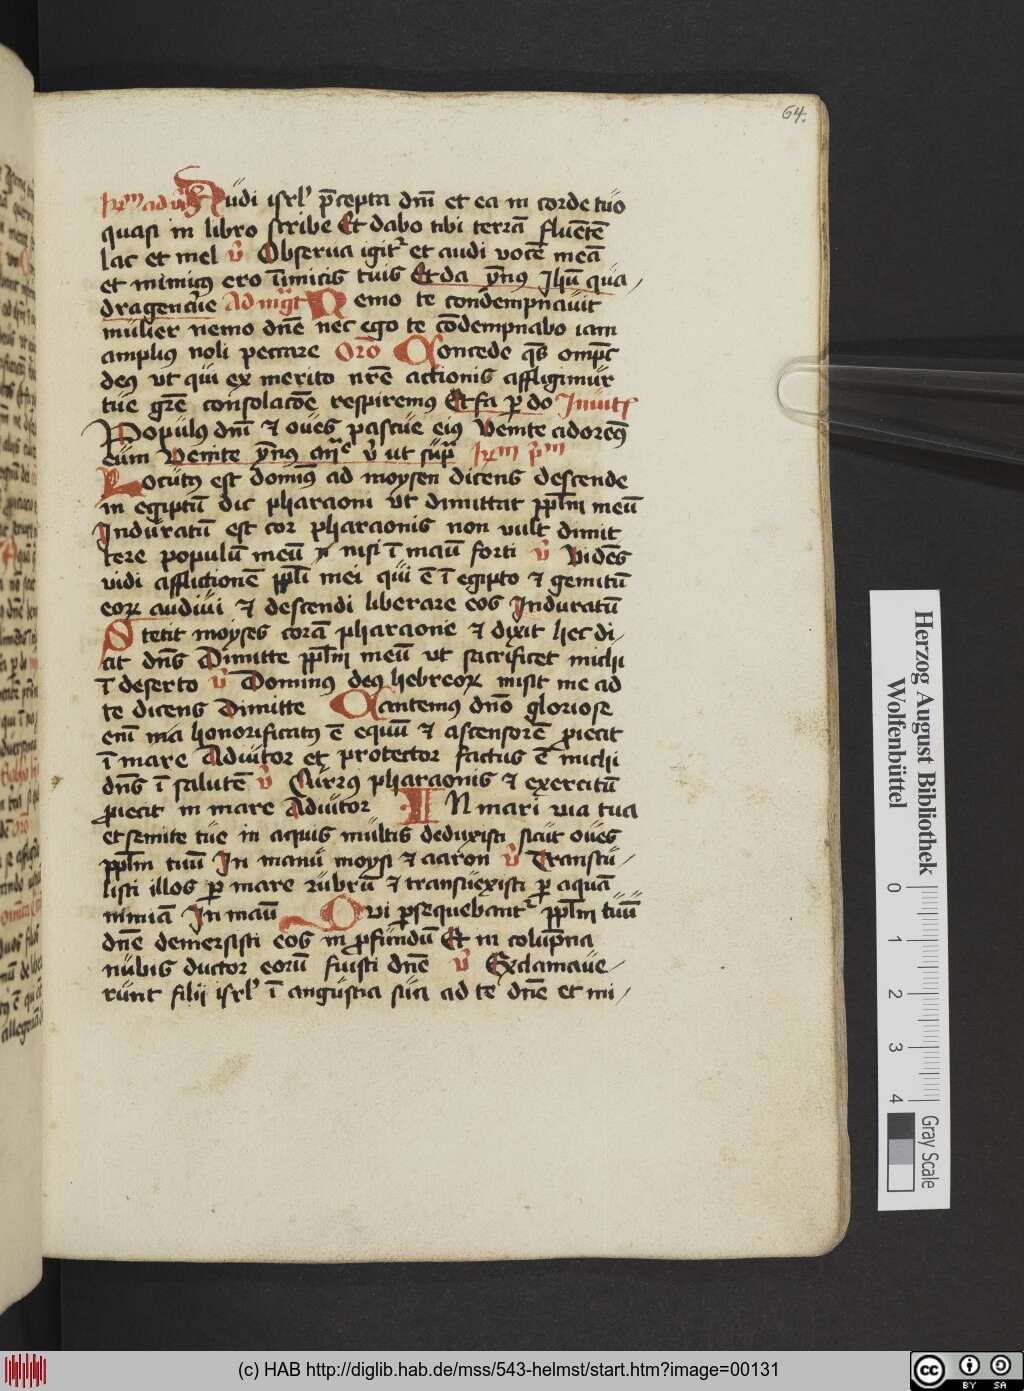 64.
Audi isrl' p̄cepta dm̄ et ea in corde tuo
quasi in libro scribe Et dabo tibi terrā fluētē
lac et mel v̄ Observa igitr̄ et audi vocē meā
et inimicꝰ ero īimicis tuis Et da ym̄nꝰ Jhū qua/
dragenarie Ad mḡt Nemo te condempnauit
mulier nemo dn̄e nec ego te cōdempnabo iam
ampliꝰ noli peccare Oro Concede qs̄ omp̄t
deꝰ ut qui ex merito nr̄e actionis affligimur
tue gr̄e consolacōe respiremꝰ Et fa p̄ do Inuit
Populꝰ dnī ⁊ oues pascue eiꝰ Venite adoremꝰ
eum Venite ym̄nꝰ v̄ ut sup̄
Locutꝰ est dominꝰ ad moysen dicens descende
in egiptū dic pharaoni ut dimittat ppl̄m meū
Induratū est cor pharaonis non vult dimit
tere populū meū nisi ī manū forti v̄ Vidēs
vidi afflictionē ppl̄i mei qui ē ī egipto ⁊ gemitū
eoꝝ audiui ⁊ descendi liberare eos Induratū
Stetit moyses corā pharaone ⁊ dixit hec di/
cit dn̄s Dimitte ppl̄m meū ut sacrificet michi
ī deserto v̄ Dominus deꝰ hebreoꝝ misit me ad
te dicens Dimitte Cantemꝰ dn̄o gloriose
enī honorificatꝰ ē equū ⁊ ascensorē proiecit
ī mare Adiutor et protector factus ē michi
dn̄s ī salutē v̄ Currꝰ pharaonis ⁊ exercitū
proiecit in mare Adiutor IN mari via tua
et semite tue in aquis multis deduxisti sicut oues
ppl̄m tuū In manu moysi ⁊ aaron v̄ Transtu/
listi illos p̄ mare rubrū ⁊ transuexisti p̄ aquā
nimiā In manū Qui persequebantr̄ ppl̄m tuū
dn̄e demersisti eos in profundū Et in colūpna
nubis ductor eorū fuisti dn̄e v̄ Exclamaue/
runt filii isrl' ī angustia sua ad te dn̄e et mi/
Herzog August Bibliothek
Wolfenbüttel
0 1 2 3 4
Gray Scale
(c) HAB http://diglib.hab.de/mss/543-helmst/start.htm?image=00131
cc BY SA